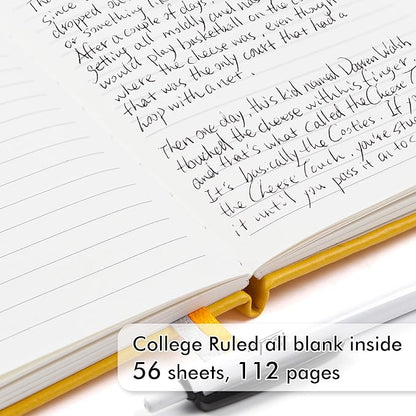 Since
dropped out
or something li
After a couple of days, t
getting all moldy and nas
would play basketball on the co
where the cheese was, even though
that was the only court that had a
hoop with a net.
Then one day, this kid named Darren Walsh
touched the cheese with his finger
and that's what called the Cheese
It's basically the Cooties. If
the Cheese Touch, you're stuc
it until you pass it on to
College Ruled all blank inside
56 sheets, 112 pages